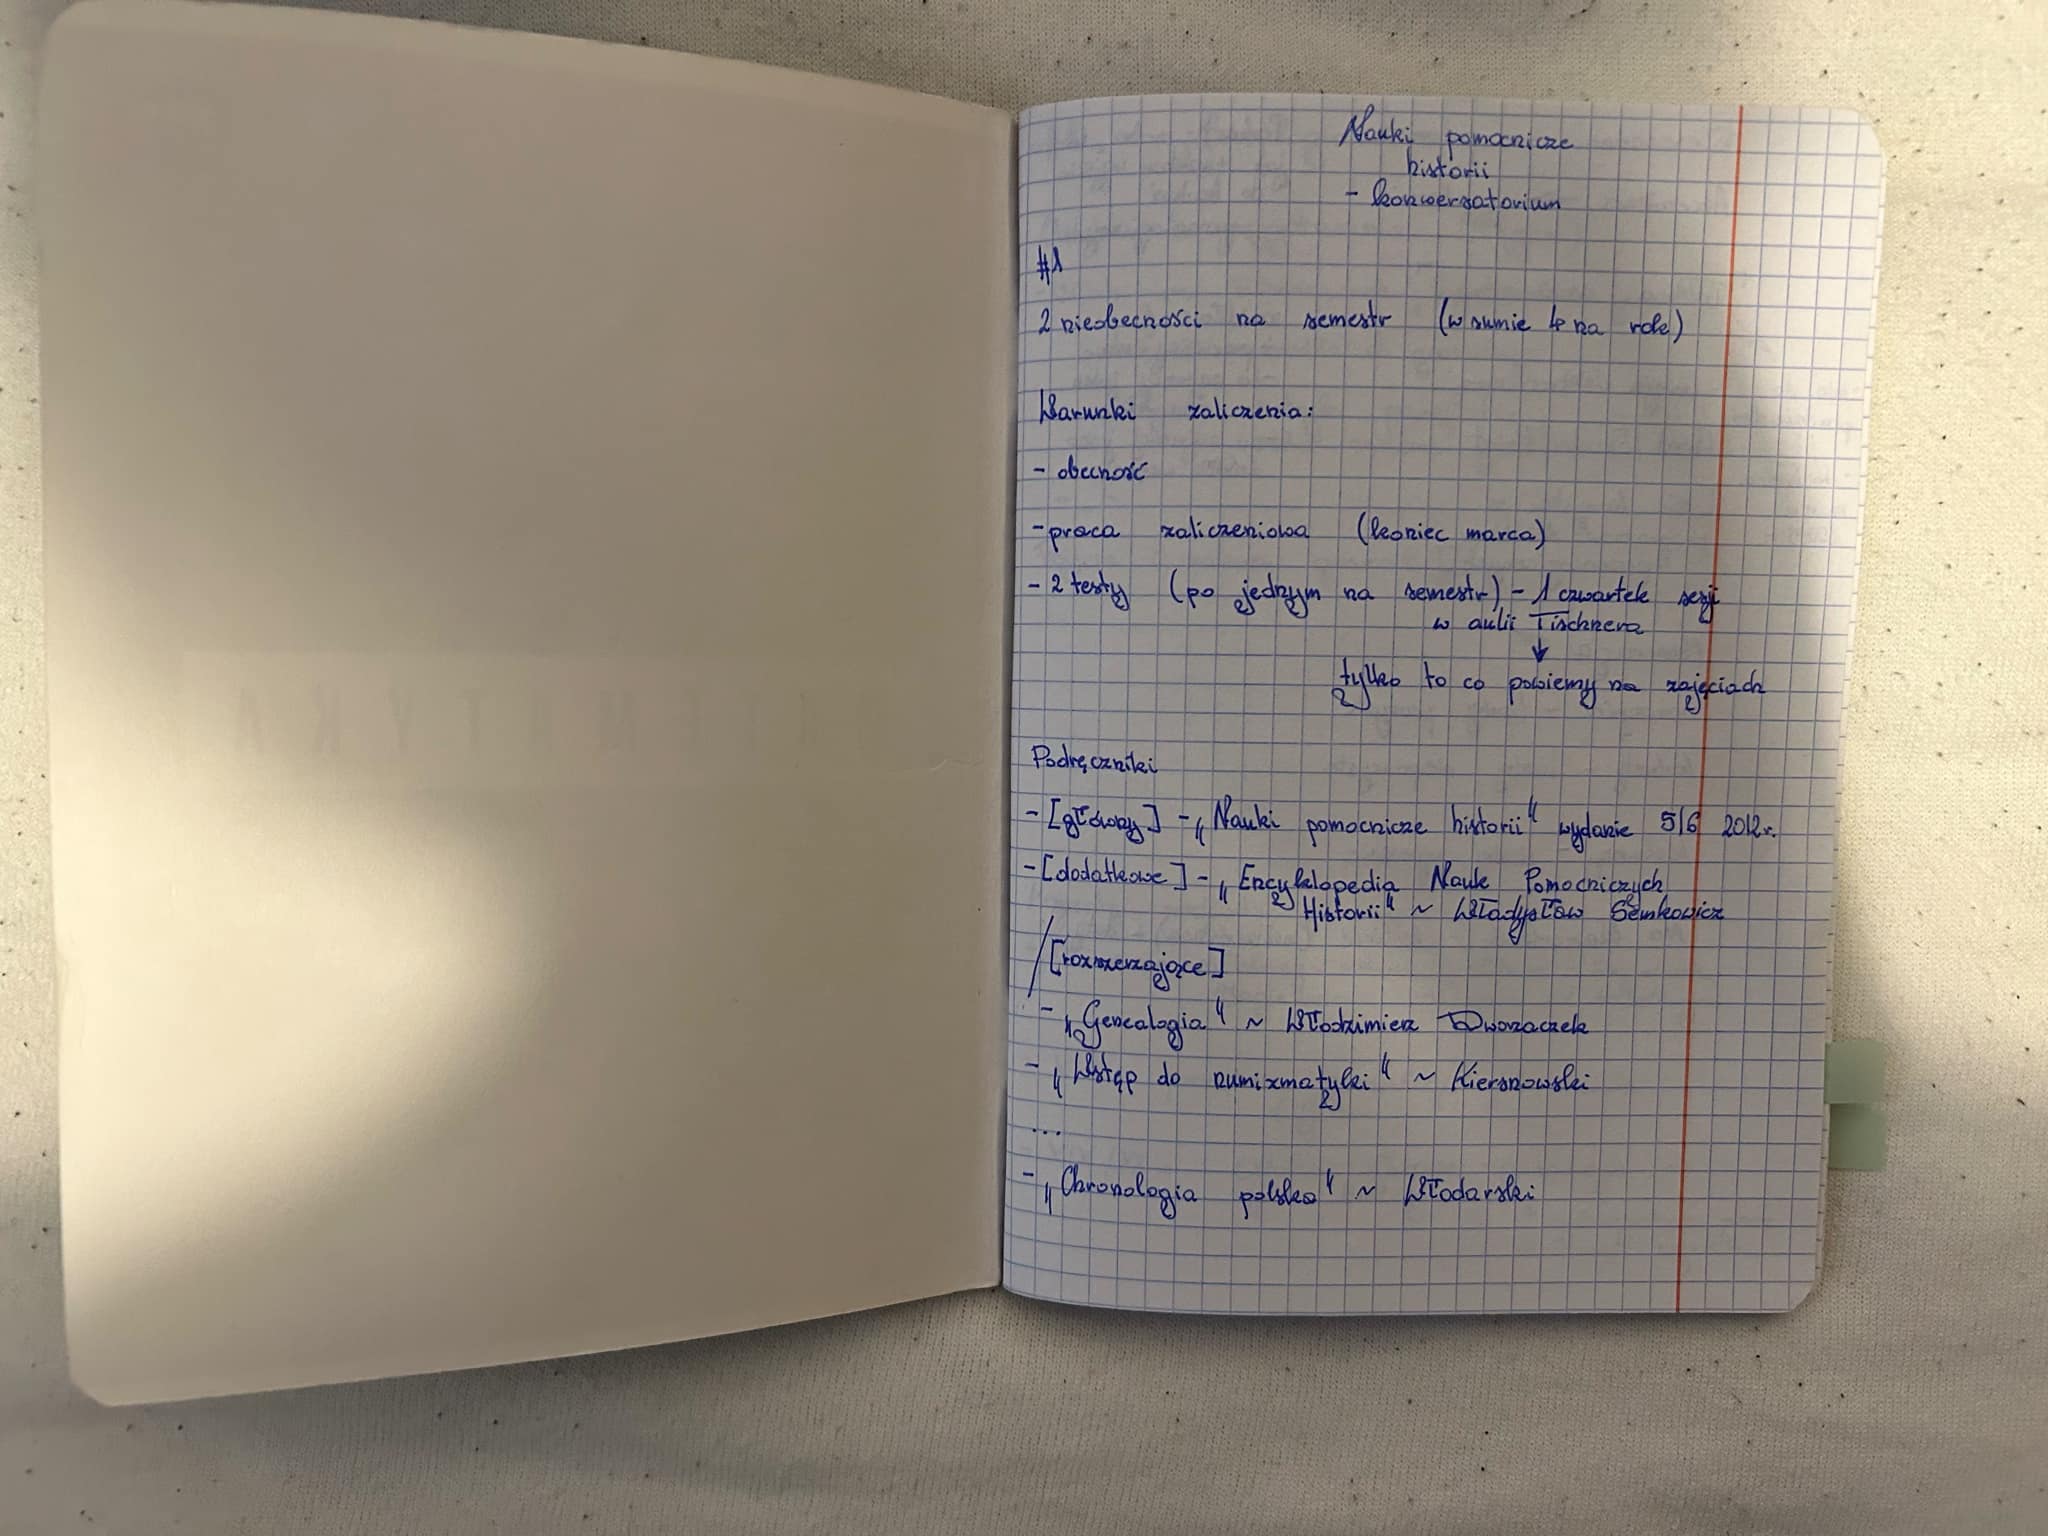 Nauki pomocnicze
historii
- konwersatorium
#1
2 nieobecności na semestr (w sumie 4 na rok)
Warunki zaliczenia:
- obecność
- praca zaliczeniowa (koniec marca)
- 2 testy (po jednym na semestr) - 1 czwartek sesji
w aulii Tischnera
↓
tylko to co powiemy na zajęciach
Podręczniki
- [główny] - „Nauki pomocnicze historii“ wydanie 5/6 2012r.
- [dodatkowe] - „Encyklopedia Nauk Pomocniczych
Historii“ ~ Władysław Semkowicz
/ [rozszerzające]
- „Genealogia“ ~ Włodzimierz Dworzaczek
- „Wstęp do numizmatyki“ ~ Kiersnowski
...
- „Chronologia polska“ ~ Włodarski